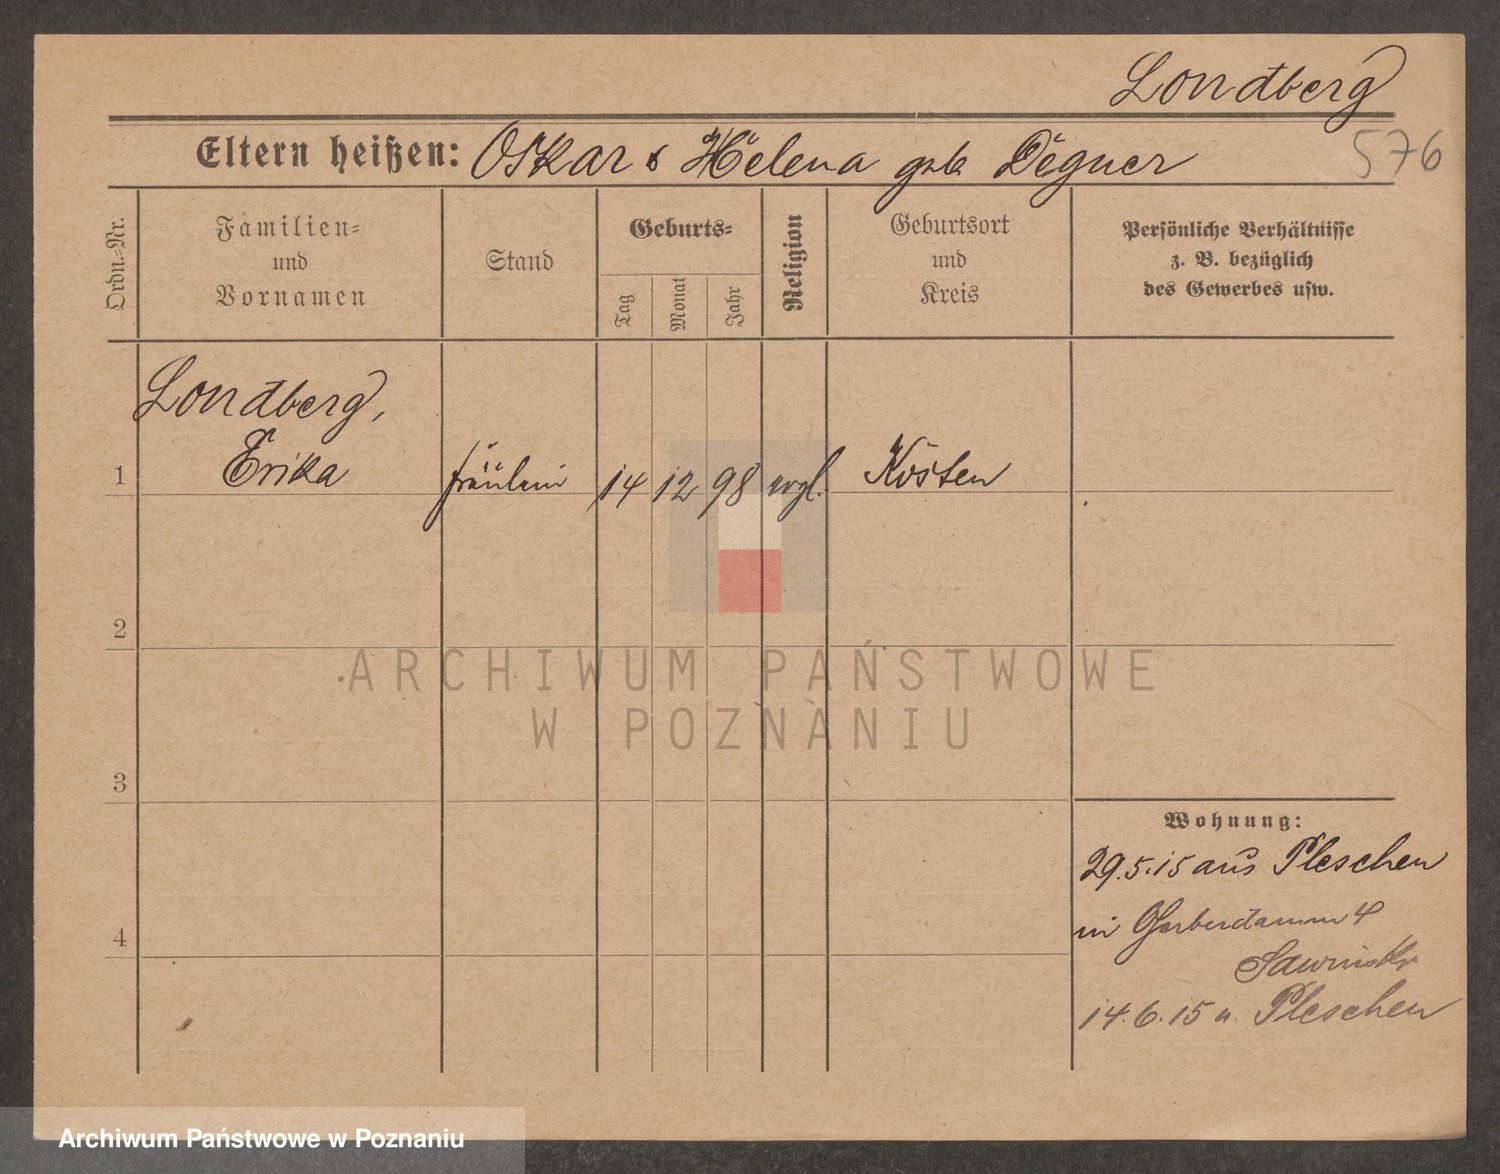 Londberg
576
Eltern heißen: Oskar & Helena geb. Degner
Ordn.-Nr.
Familien-
und
Vornamen
Stand
Geburts-
Tag
Monat
Jahr
Religion
Geburtsort
und
Kreis
Persönliche Verhältnisse
z. B. bezüglich
des Gewerbes usw.
Londberg,
Erika
1
Fräulein 14 12 98 evgl. Kosten
2
ARCHIWUM PAŃSTWOWE
W POZNANIU
3
Wohnung:
29.5.15 aus Pleschen
in Gerberdamm 4
4
14.6.15 n. Pleschen
Archiwum Państwowe w Poznaniu